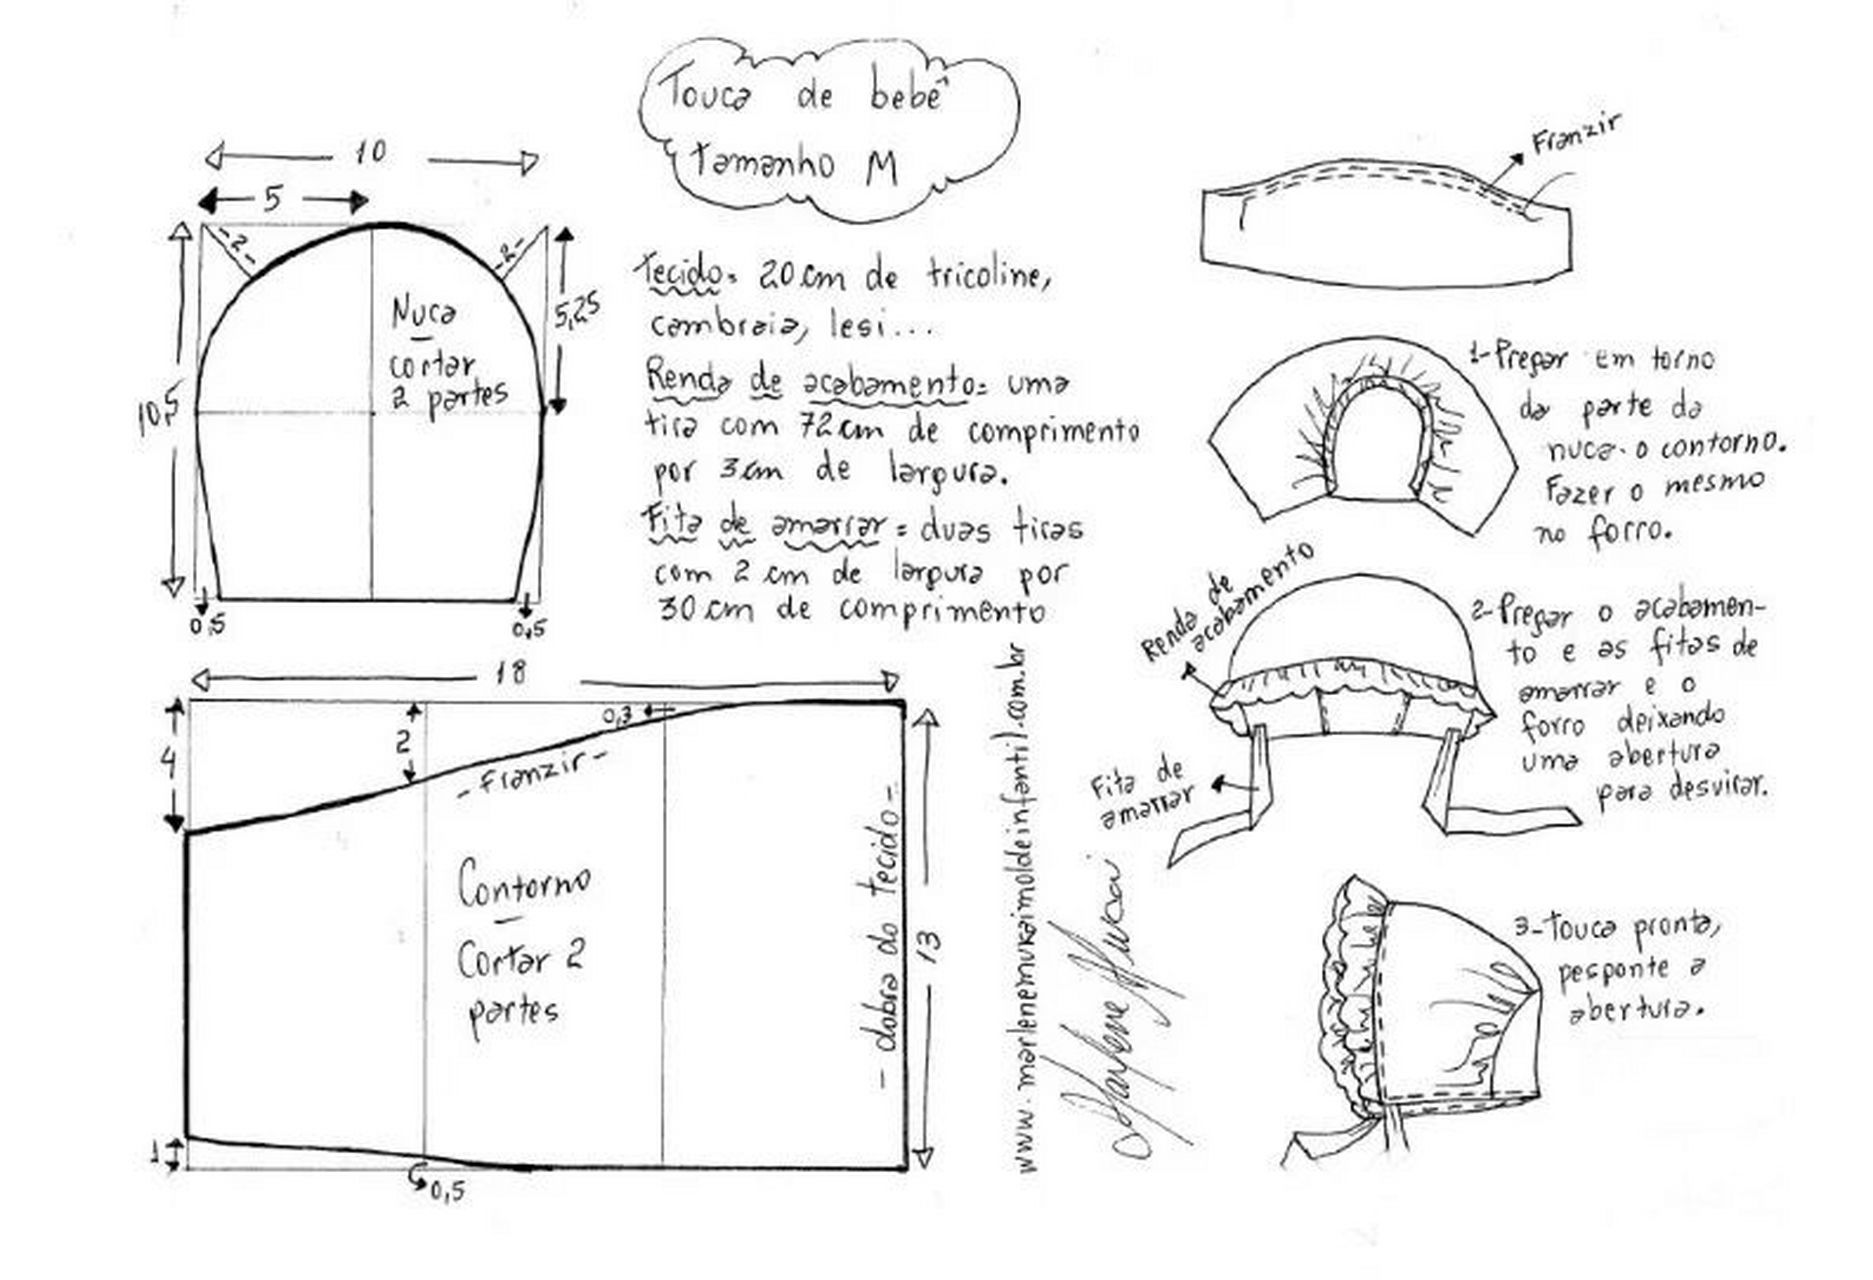 Touca de bebê
Tamanho M
10
5
-2-
-2-
5,25
10,5
Nuca
cortar
2 partes
0,5
0,5
Tecido= 20cm de tricoline,
cambraia, lesi...
Renda de acabamento= uma
tira com 72cm de comprimento
por 3cm de largura.
Fita de amarrar= duas tiras
com 2 cm de largura por
30cm de comprimento
18
4
2
0,3
-Franzir-
Contorno
Cortar 2
partes
- dobra do tecido-
13
1
0,5
www.marlenemukaimoldeinfantil.com.br
Marlene Mukai
Franzir
1-Pregar em torno
da parte da
nuca o contorno.
Fazer o mesmo
no forro.
Renda de
acabamento
2-Pregar o acabamen-
to e as fitas de
amarrar e o
forro deixando
uma abertura
para desvirar.
Fita de
amarrar
3-Touca pronta,
pesponte a
abertura.